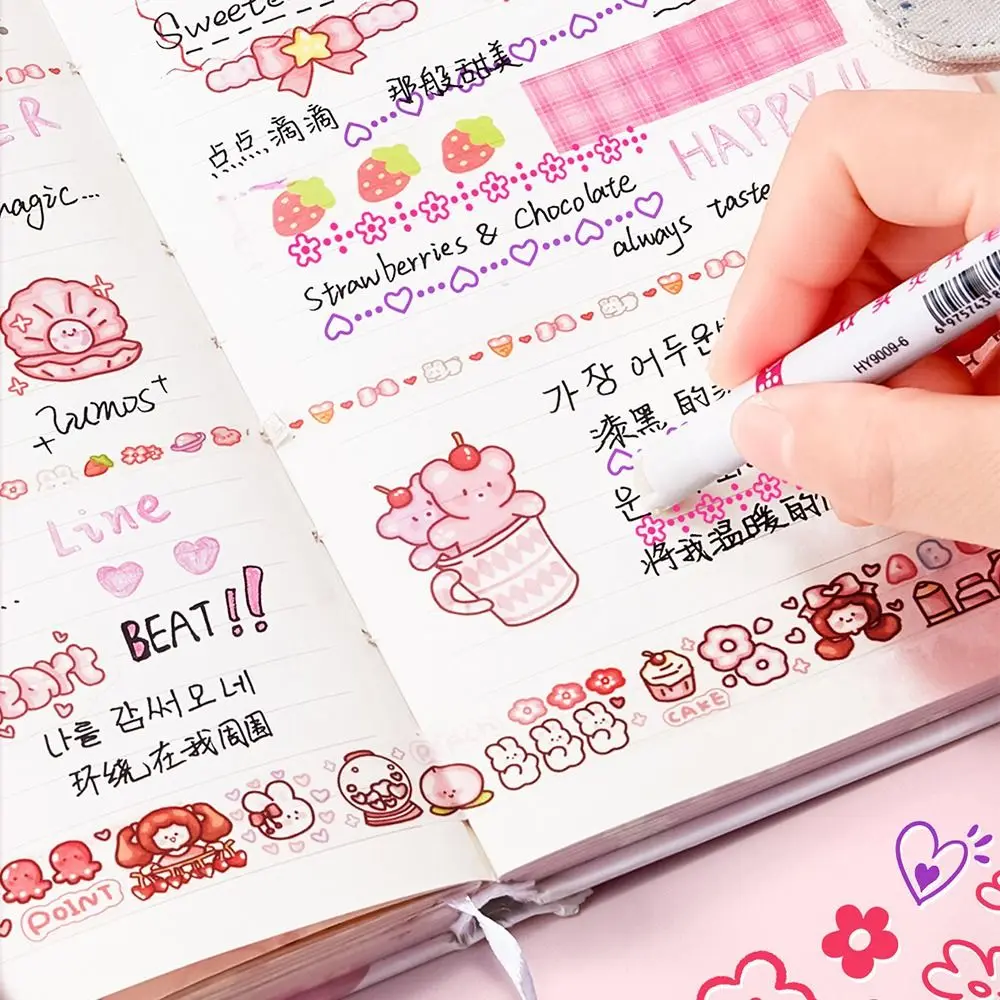 magic...
Lumos
Line
BEAT!!
나를 감싸오네
环绕在我周围
POINT
Sweete
点点滴滴 那般甜美
HAPPY!!
Strawberries & Chocolate
always taste
가장 어두운
漆黑的
운
将我温暖的
CAKE
HY9009-6